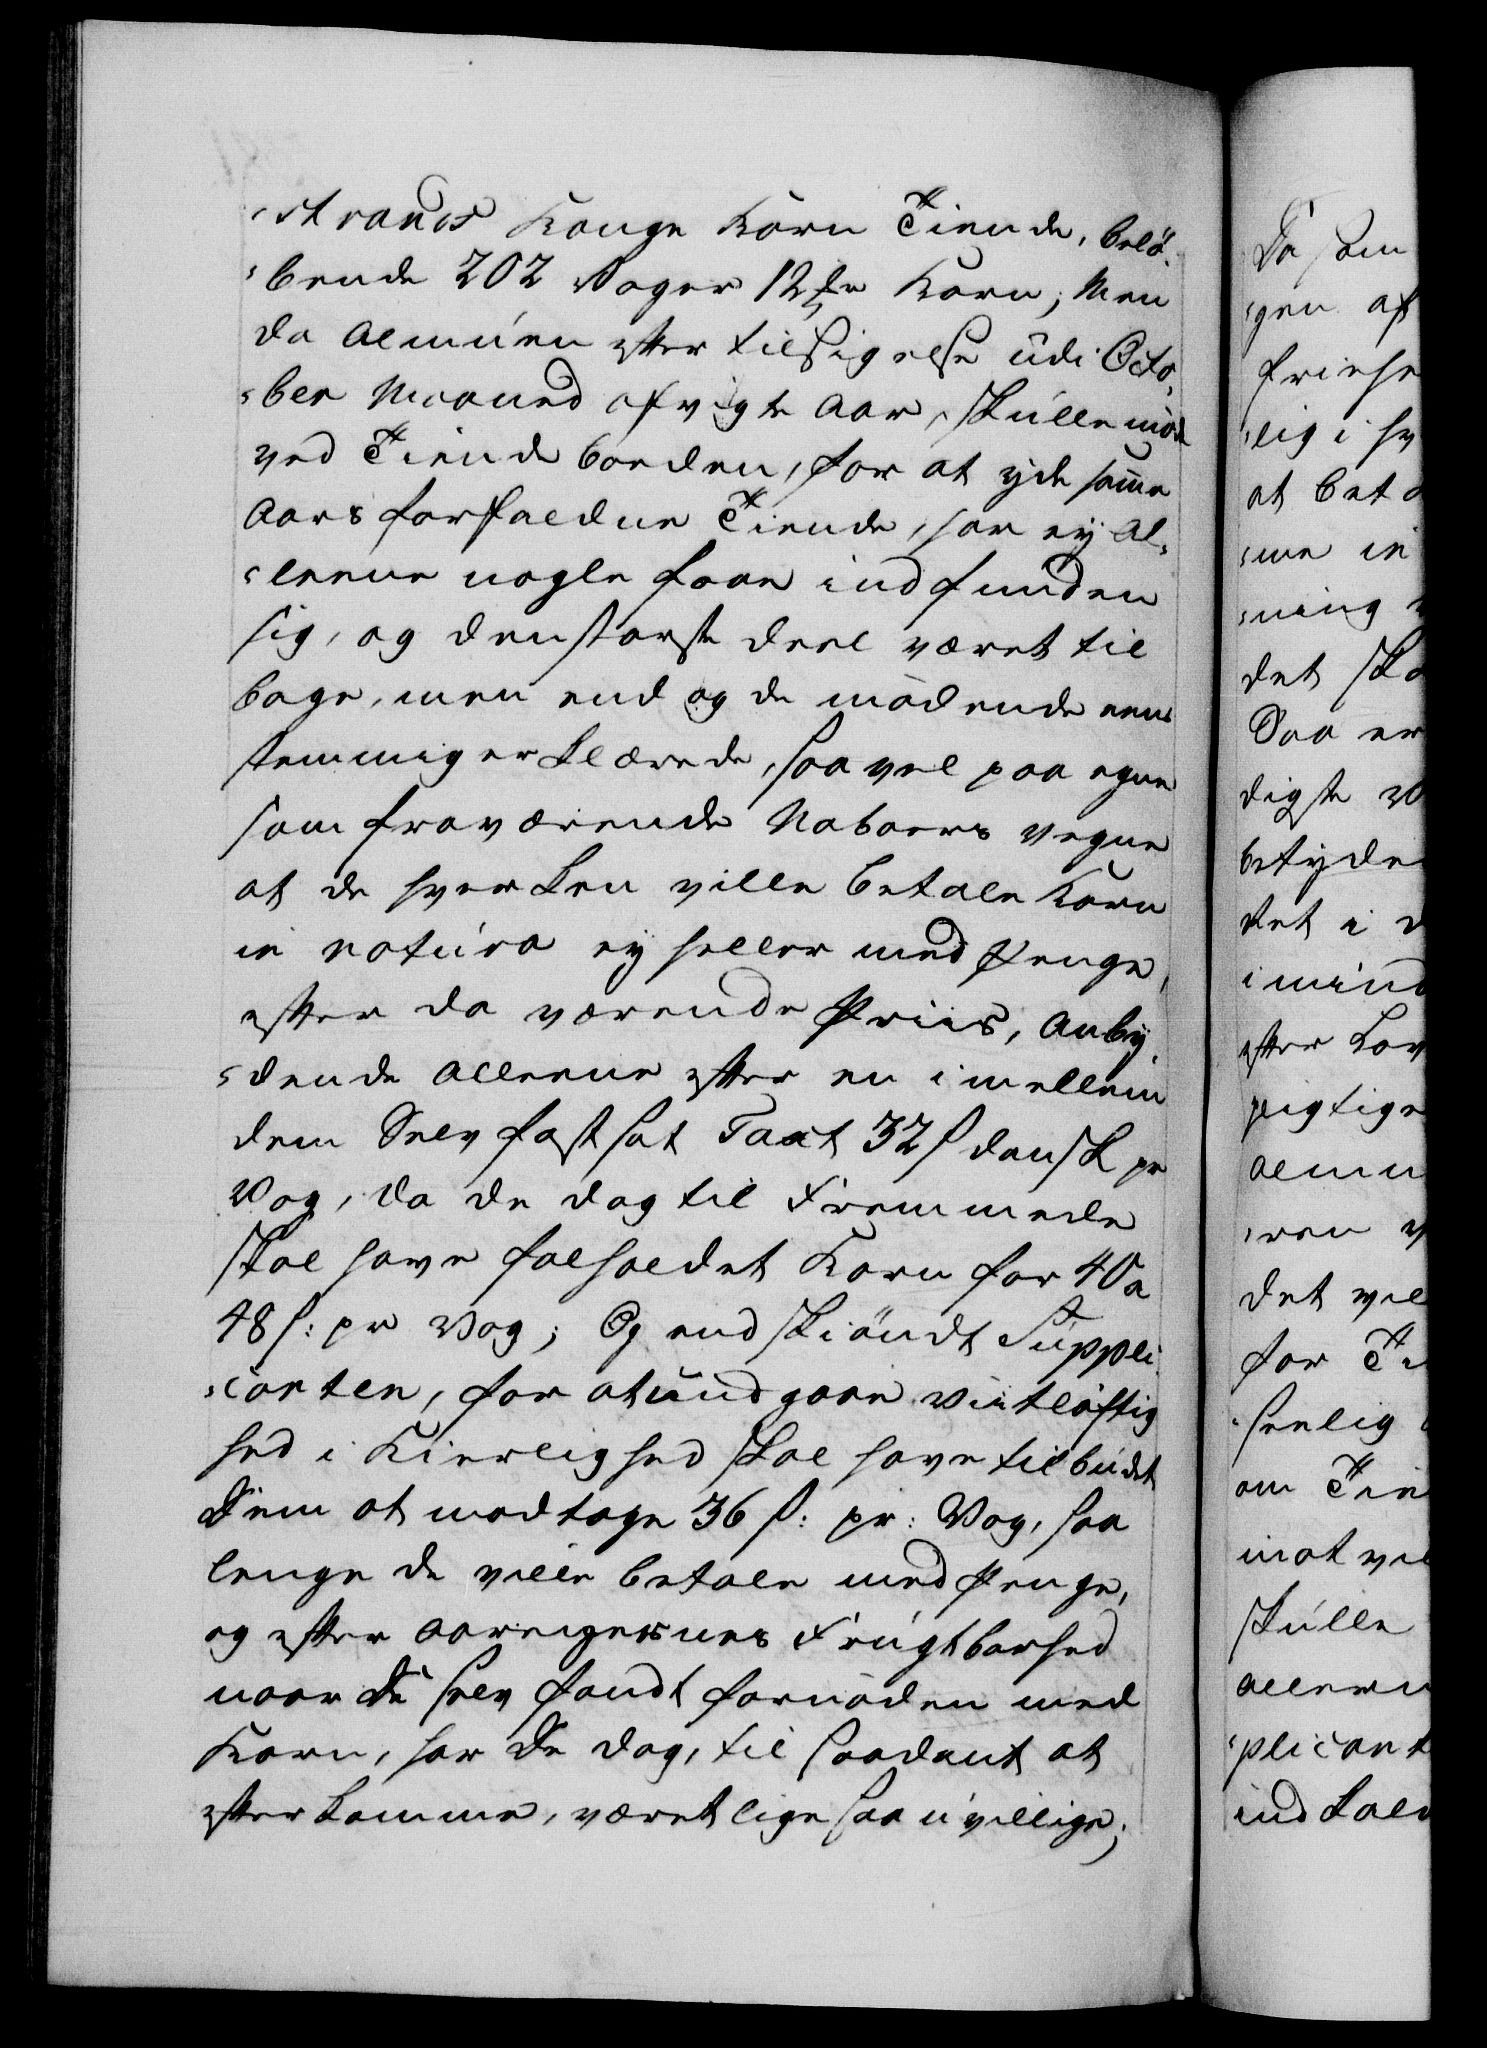 -strands Konge Korn Tiende, belö-
-bende 202 Voger 12 Korn; Men
da Almuen efter tilsigelse udi Octo-
-ber Maaned afvigte Aar, skulle möde
ved Tiende boeden, for at yde samme
Aars forfaldne Tiende, har ey al-
-leene nogle faae indfunden
sig, og den störste deel været til
bage, men end og de mödende een-
stemmig erklærede, saa vel paa egne
som fraværende Naboers vegne
at de hverken ville betale Korn
in natura ey heller med Penge,
efter da værende Priis, anby-
-dende alleene efter en imellem
dem Selv fastsat Taxt 32 s dansk pr
Vog, da de dog til Fremmede
skal have falholdet Korn for 40 a
48 s: pr Vog; Og endskiöndt Suppli-
-canten, for at undgaae Viitlöftig
hed i Kierlighed skal have tilbudet
Dem at modtage 36 s: pr: Vog, saa
lenge de ville betale med Penge,
og efter Aaringernes Frugtbarhed
naar De selv fandt fornöden med
Korn, har De dog, til saadant at
efterkomme, været lige saa uvillige;
Da som
-gen af
friehe
-lig i hv
at beta
-me in
-ning
det ska
Saa er
digste
betyde
det i
i mind
efter Lov
pligtige
Almu
-ren
det vil
for Ti
-senlig
om Tie
mod vil
skulle
allern
-plicant
ind kald